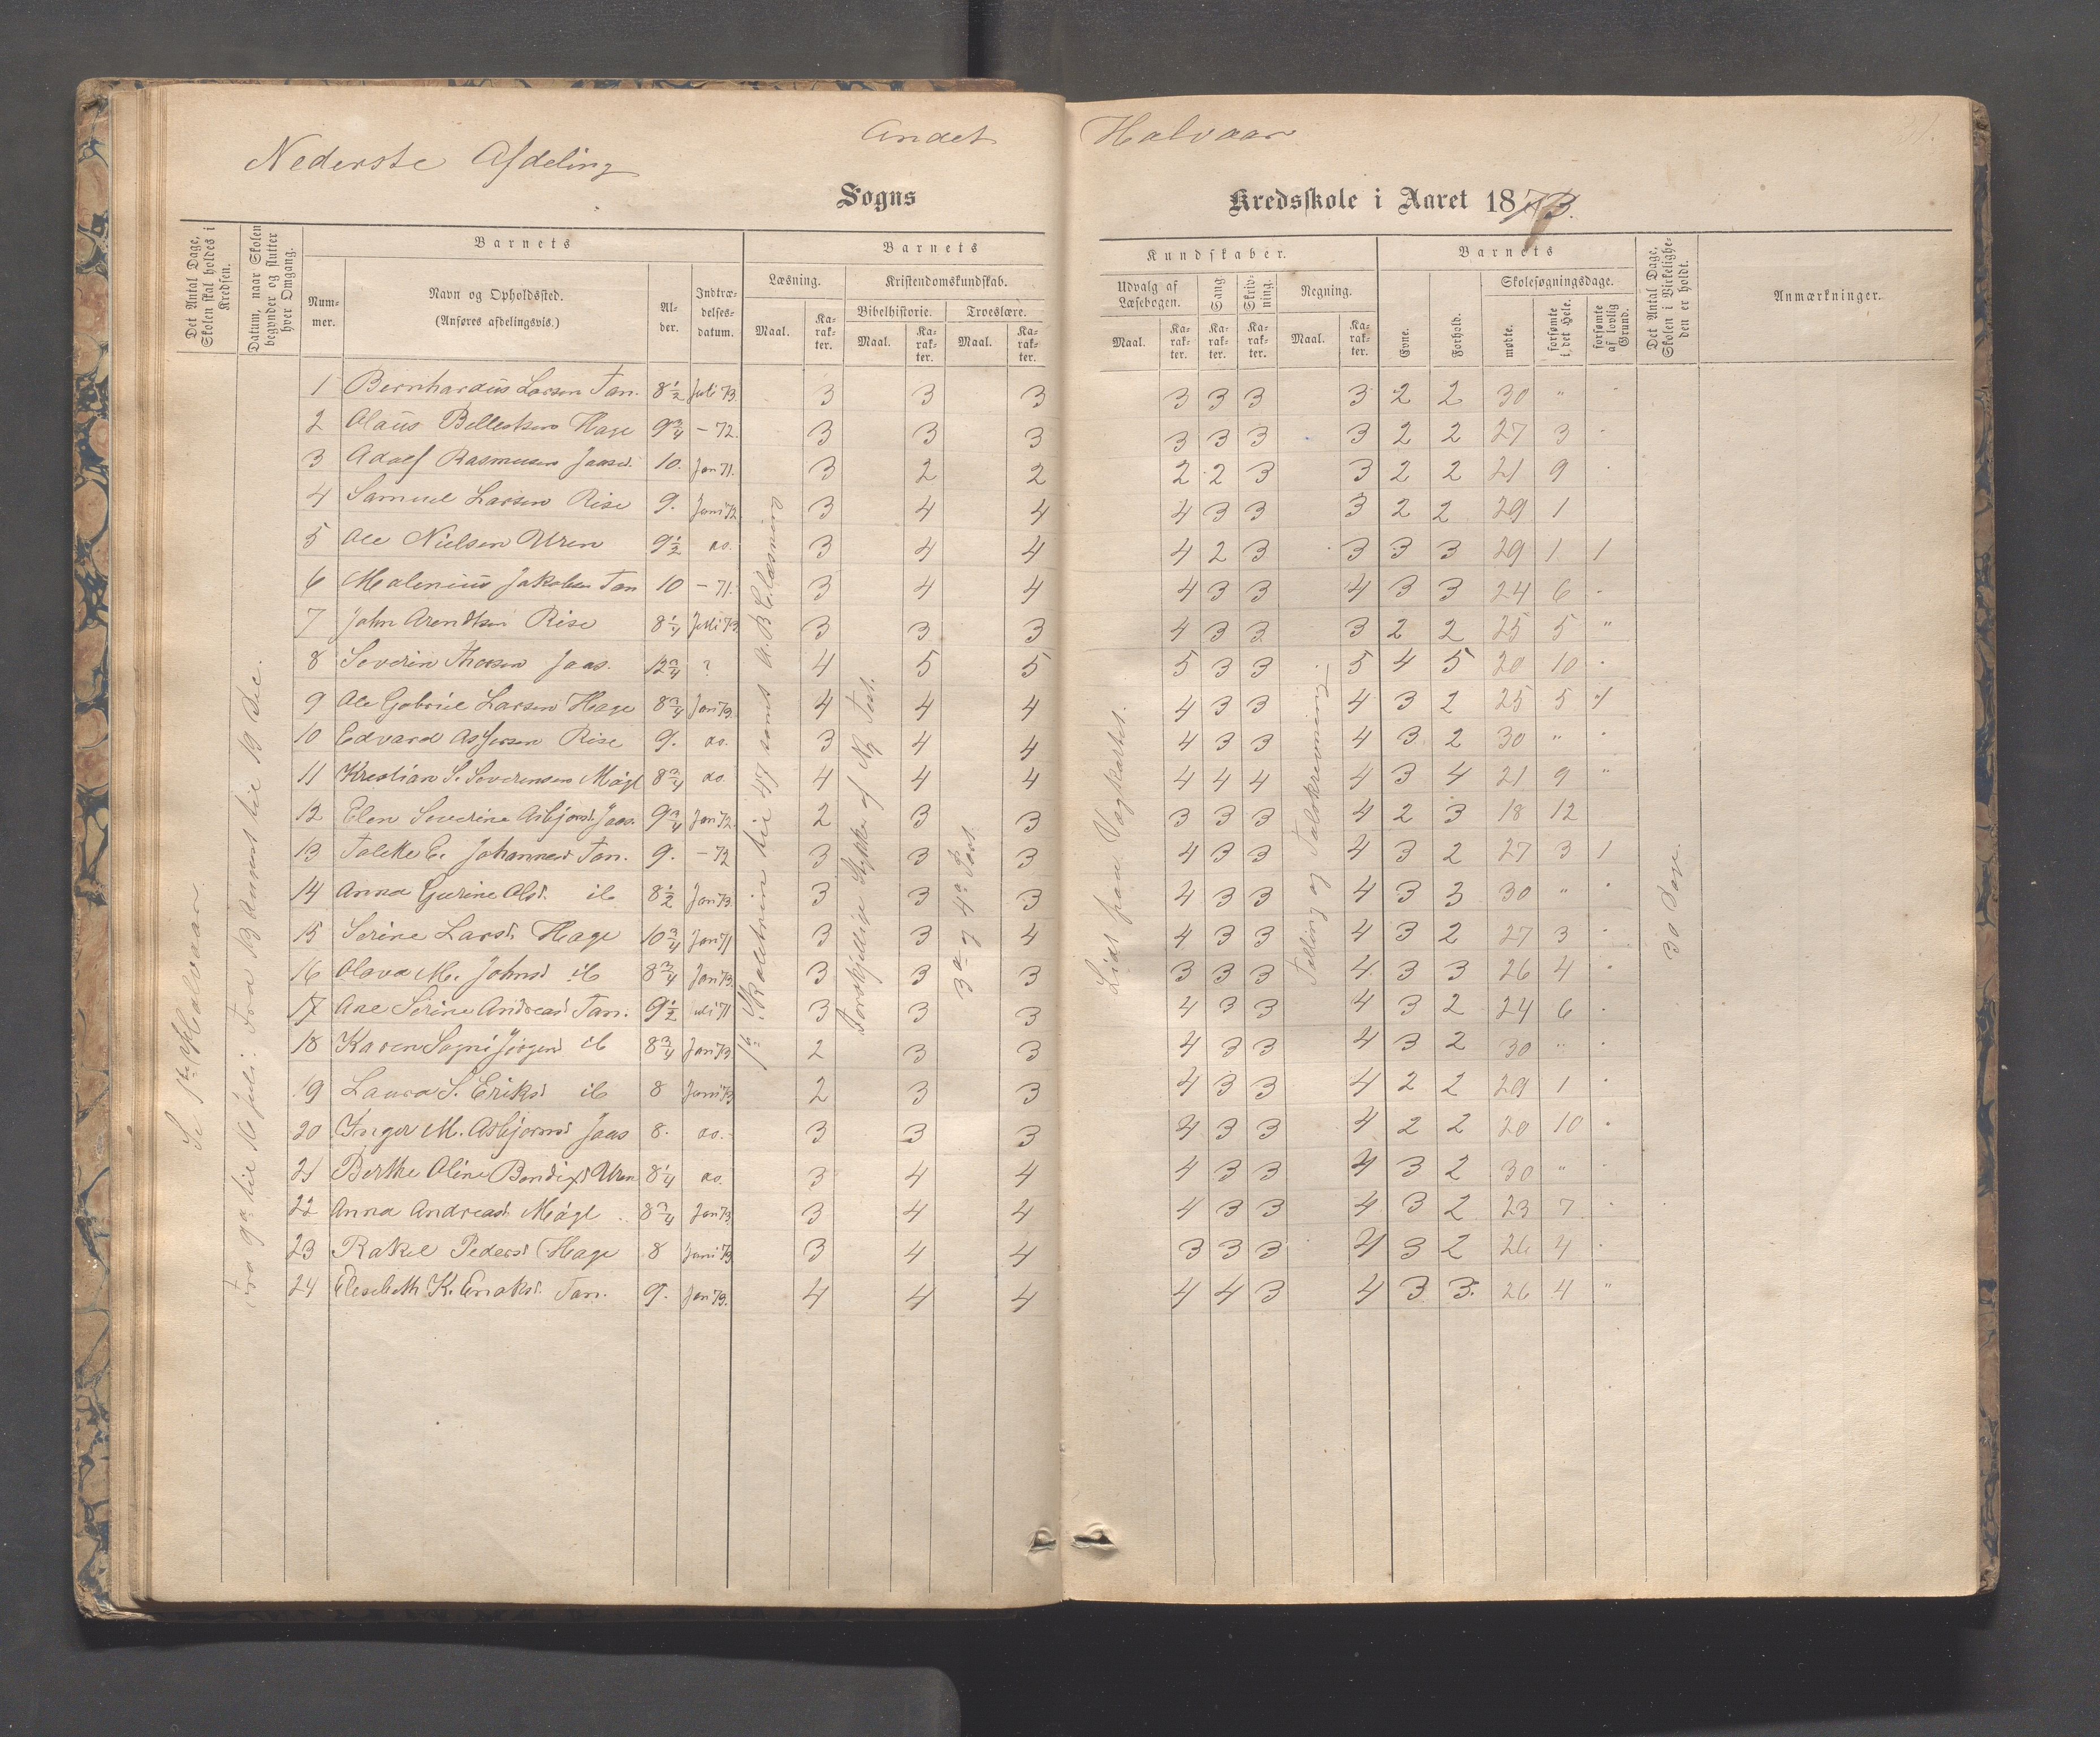 Andet Halvaar
Nederste Afdeling
Sogns Kredsskole i Aaret 1873.
Det Antal Dage, Skolen skal holdes i Kredsen.
Datum, naar Skolen begynder og slutter hver Omgang.
Barnets
Nummer.
Navn og Opholdssted.
(Anføres afdelingsvis.)
Alder.
Indtrædelsesdatum.
Barnets
Læsning.
Maal.
Karakter.
Kristendomskundskab.
Bibelhistorie.
Maal.
Karakter.
Troeslære.
Maal.
Karakter.
Kundskaber.
Udvalg af Læsebogen.
Maal.
Karakter.
Sang
Karakter.
Skrivning.
Karakter.
Regning.
Maal.
Karakter.
Barnets
Evne.
Forhold.
Skolesøgningsdage.
mødte.
forsømte i det Hele.
forsømte af lovlig Grund.
Det Antal Dage, Skolen i Virkeligheden er holdt.
Anmærkninger.
1 Bernhardus Larsen Tan. 8½ Juli 73. 3 3 3 3 3 3 3 2 2 30 "
2 Olaus Hage 9¾ – 72. 3 3 3 3 3 3 3 2 2 27 3
3 Adolf Rasmusen 10. Jan 71. 3 2 2 2 2 3 3 2 2 21 9
4 Samuel Larsen Rise 9. Juni 72 3 4 4 4 3 3 3 2 2 29 1
5 Ole Nielsen Uren 9½ do. 3 4 4 4 2 3 3 3 3 29 1 1
6 Malenius Jakobsen Tan 10 – 71. 3 4 4 4 3 3 4 3 3 24 6
7 John Arendtsen Rise 8¼ Juli 73 3 3 3 4 3 3 3 2 2 25 5 "
8 Severin Thorsen Jaas. 12¾ ? 4 5 5 5 3 3 5 4 5 20 10
9 Ole Gabriel Larsen Hage 8¾ Jan 73. 4 4 4 4 3 3 4 3 2 25 5 4
10 Edvard Rise 9. do. 3 4 4 4 3 3 4 3 2 30 "
11 Kristian S. Severensen Mågl 8¾ do. 4 4 4 4 4 4 4 3 4 21 9 "
12 Elen Severine Asbjørnsd. Jaas. 9¾ Jan 72. 2 3 3 3 3 3 4 2 3 18 12
13 Talette E. Johannesd. Tan. 9. – 72 3 3 3 4 3 3 4 3 2 27 3 1
14 Anna Gurine Olsd. ib 8½ Jan 73. 3 3 3 4 3 3 4 3 3 30 "
15 Serine Larsd. Hage 10¾ Jan 71 3 3 4 4 3 3 4 3 2 27 3
16 Olava M. Johnsd. ib 8¾ Jan 73. 3 3 3 3 3 3 4. 3 3 26 4
17 Ane Serine Andreasd. Tan. 9½ Juli 71 3 3 3 4 3 3 4 3 2 24 6
18 Karen Jørgensd. ib 8¾ Jan 73 2 3 3 4 3 3 4 3 2 30 "
19 Laura S. Eriksd. ib 8 Juni 73 2 3 3 4 3 3 4 2 2 29 1
20 Inger M. Asbjørnsd. Jaas 8. do. 3 3 3 4 3 3 4 2 2 20 10
21 Berthe Oline Uren 8¼ do. 3 4 4 4 3 3 4 3 2 30 "
22 Anna Andreasd. Mågl 8¾ Jan 73 3 4 4 4 3 3 4 3 2 23 7
23 Rakel Pedersd. Hage 8 Juni 73 3 4 4 3 3 3 4 3 2 26 4
24 Elesebeth K. Tan. 9. Jan 73. 4 4 4 4 4 3 4 3 3. 26 4 "
Se 1ste Halvaar.
Fra 9de til 16 Juli. Fra 13 August til 13 Dec.
1ste Skoletrin til 49 samt A.B.C. læsning
Forskjellige Stykker af Ny Test.
3die og 4de Part.
Lidt fra Vægkartet.
Telling og Talskrivning.
30 Dage.